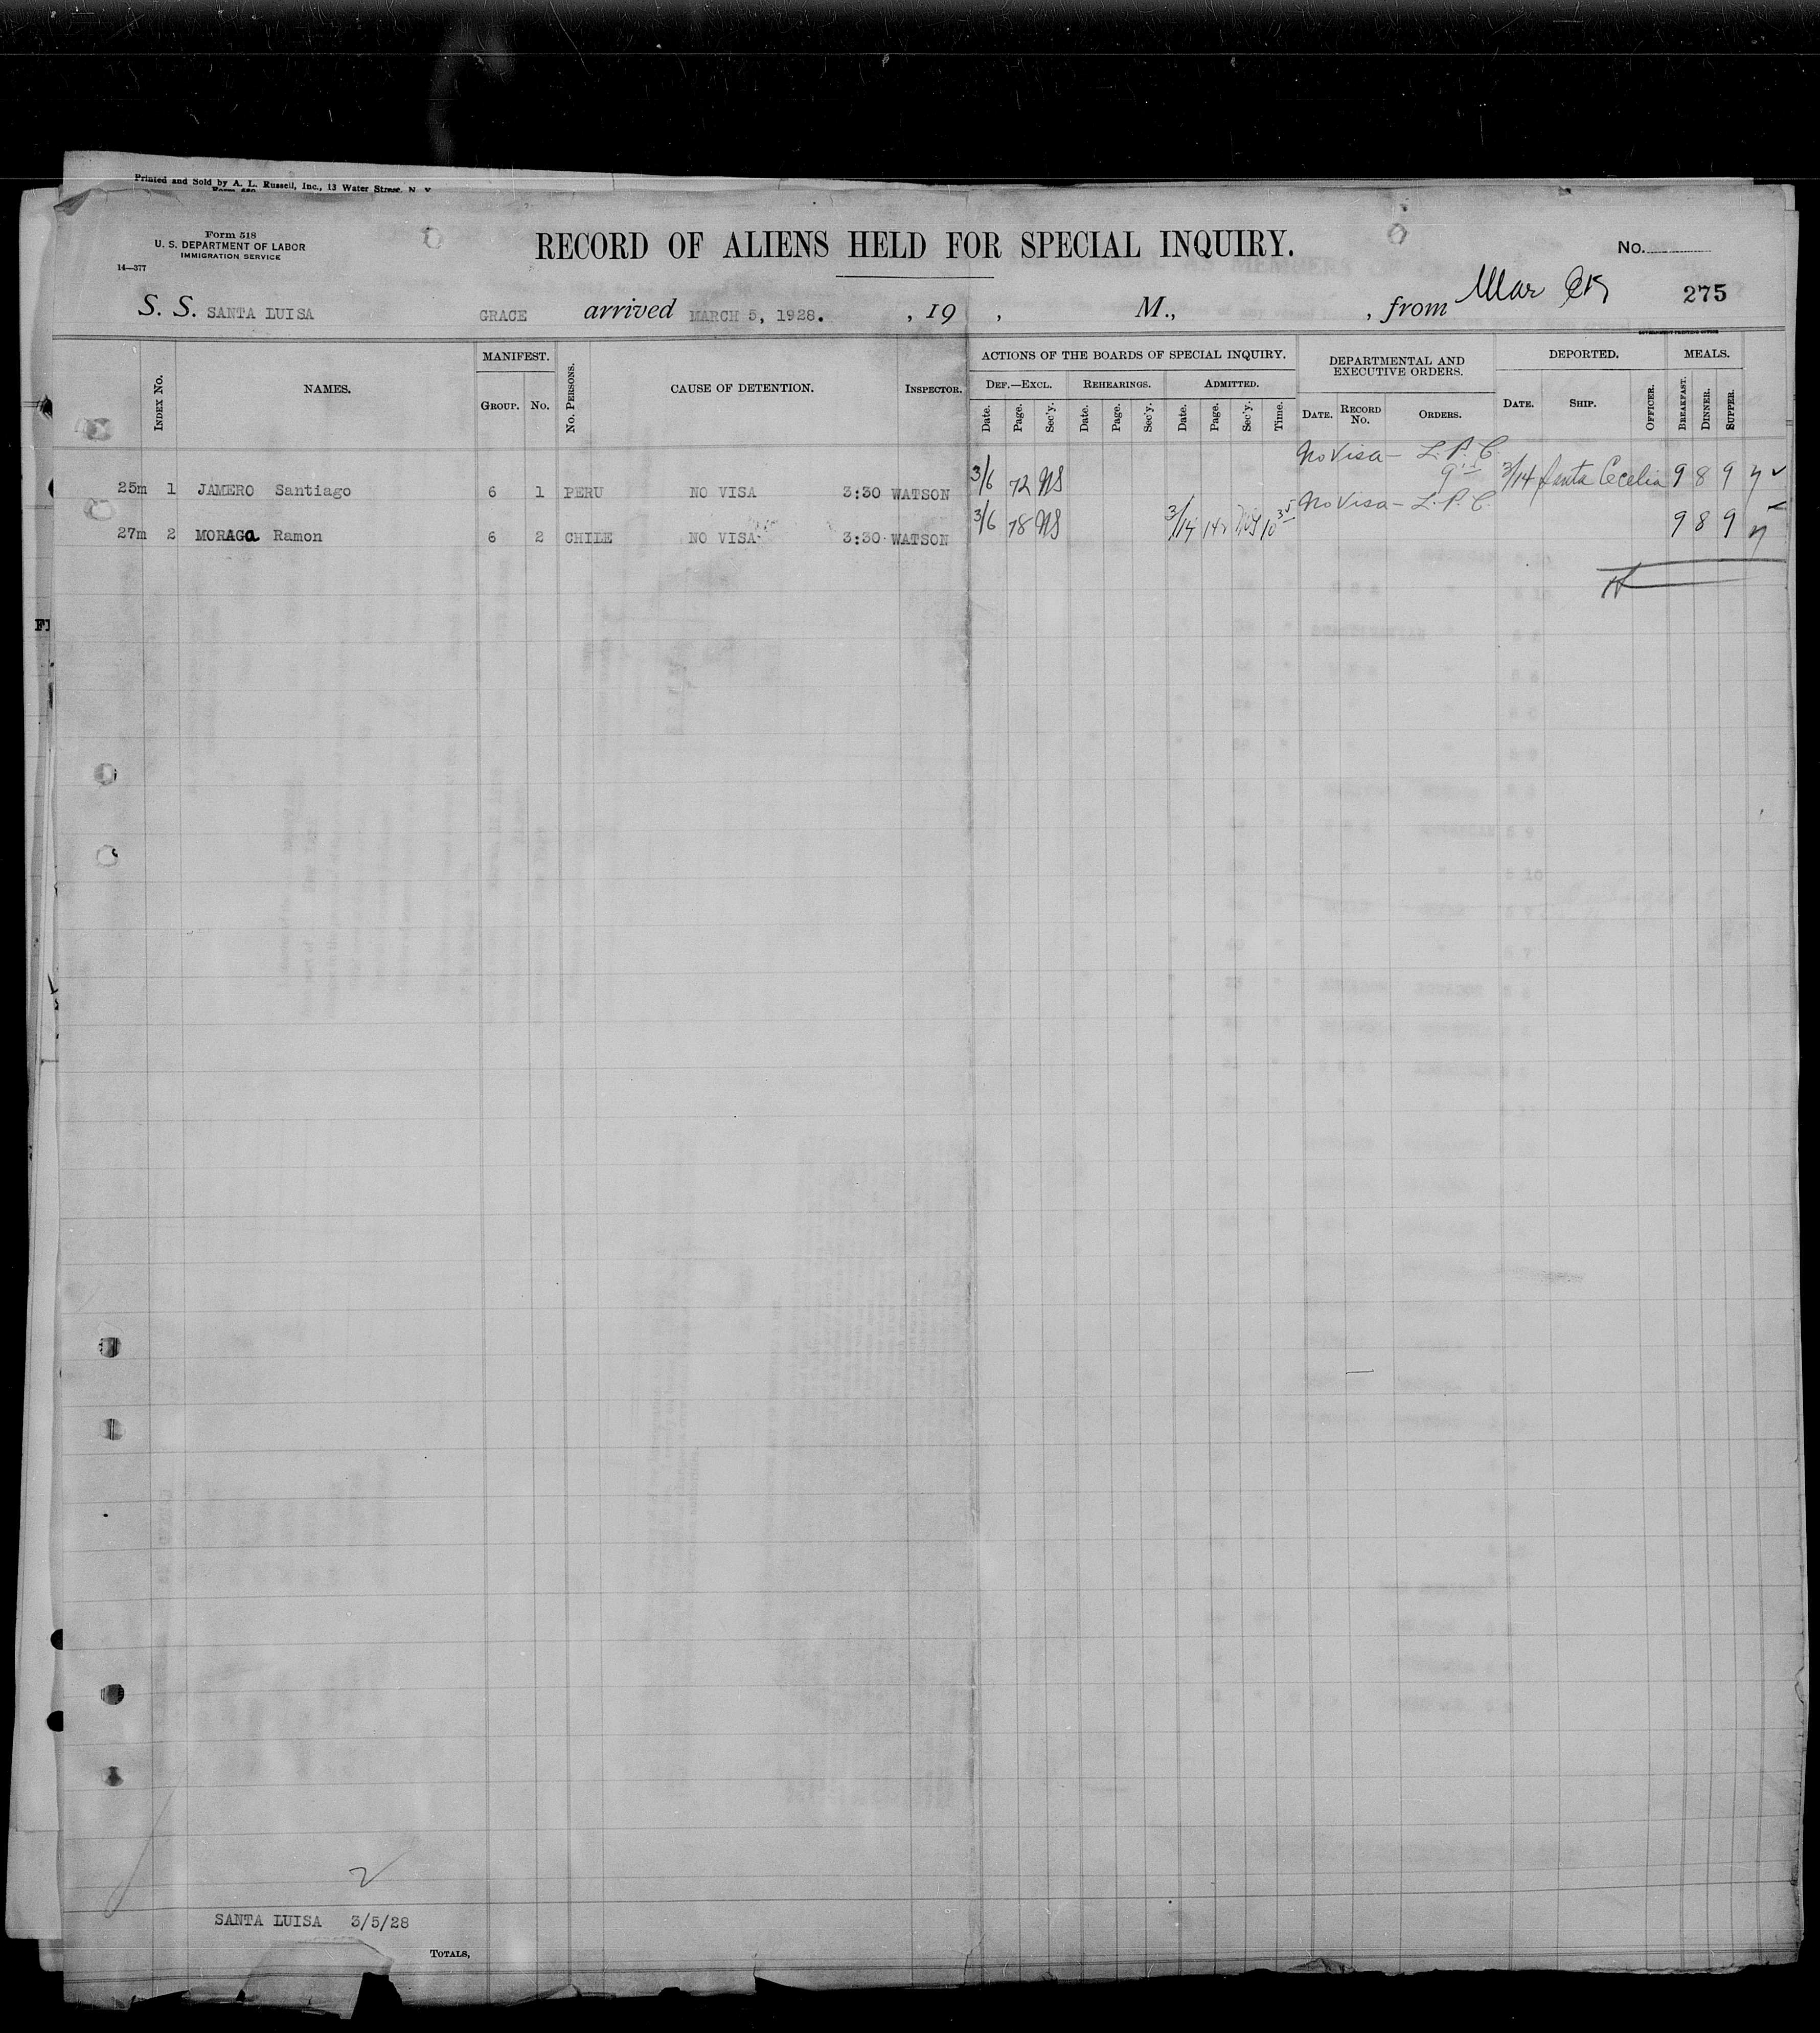 Printed and Sold by A. L. Russell, Inc., 13 Water Street, N. Y.
Form 518
U. S. DEPARTMENT OF LABOR
IMMIGRATION SERVICE
14—377
RECORD OF ALIENS HELD FOR SPECIAL INQUIRY.
No.
S. S. SANTA LUISA GRACE arrived MARCH 5, 1928. , 19 , M., , from Mar 275
GOVERNMENT PRINTING OFFICE
INDEX No. NAMES. MANIFEST. GROUP. No. No. PERSONS. CAUSE OF DETENTION. INSPECTOR. ACTIONS OF THE BOARDS OF SPECIAL INQUIRY. DEPARTMENTAL AND EXECUTIVE ORDERS. DEPORTED. MEALS.
DEF.—EXCL. REHEARINGS. ADMITTED.
Date. Page. Sec'y. Date. Page. Sec'y. Date. Page. Sec'y. Time. DATE. RECORD No. ORDERS. DATE. SHIP. OFFICER. BREAKFAST. DINNER. SUPPER.
No Visa — L. P. C.
25m 1 JAMERO Santiago 6 1 PERU NO VISA 3:30 WATSON 3/6 72 NS 3/14 Santa Cecelia 9 8 9
No Visa — L. P. C.
27m 2 MORAGa Ramon 6 2 CHILE NO VISA 3:30 WATSON 3/6 78 NS 9 8 9
2
SANTA LUISA 3/5/28
TOTALS,